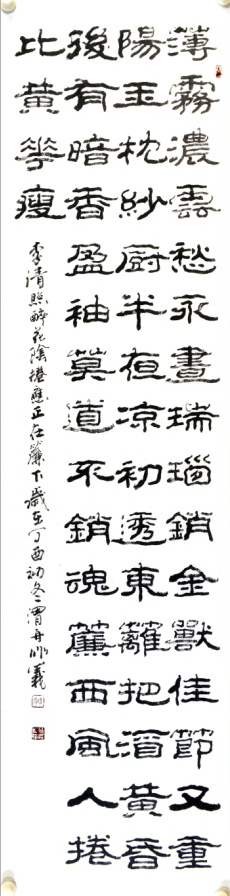 薄霧濃雲愁永晝瑞瑙銷金獸佳節又重
陽玉枕紗厨半夜凉初透東籬把酒黃昏
後有暗香盈袖莫道不銷魂簾西風人捲
比黃華瘦
李清照醉花陰捲應正在簾下歲在丁酉初冬渭舟